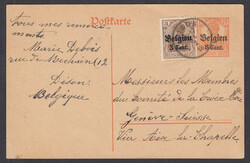 Postkarte
tous mes remer
Belgien
3 Cent.
Belgien
8 Cent.
Marie Debois
rue de Mechain (12
Dison
Belgique
Messieurs les Membres
du Comité de la
Genève Suisse
Via Aix la Chapelle